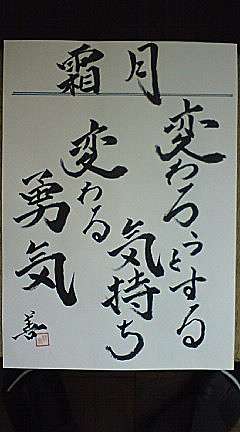 霜月
変わろうとする
気持ち
変わる
勇気
善